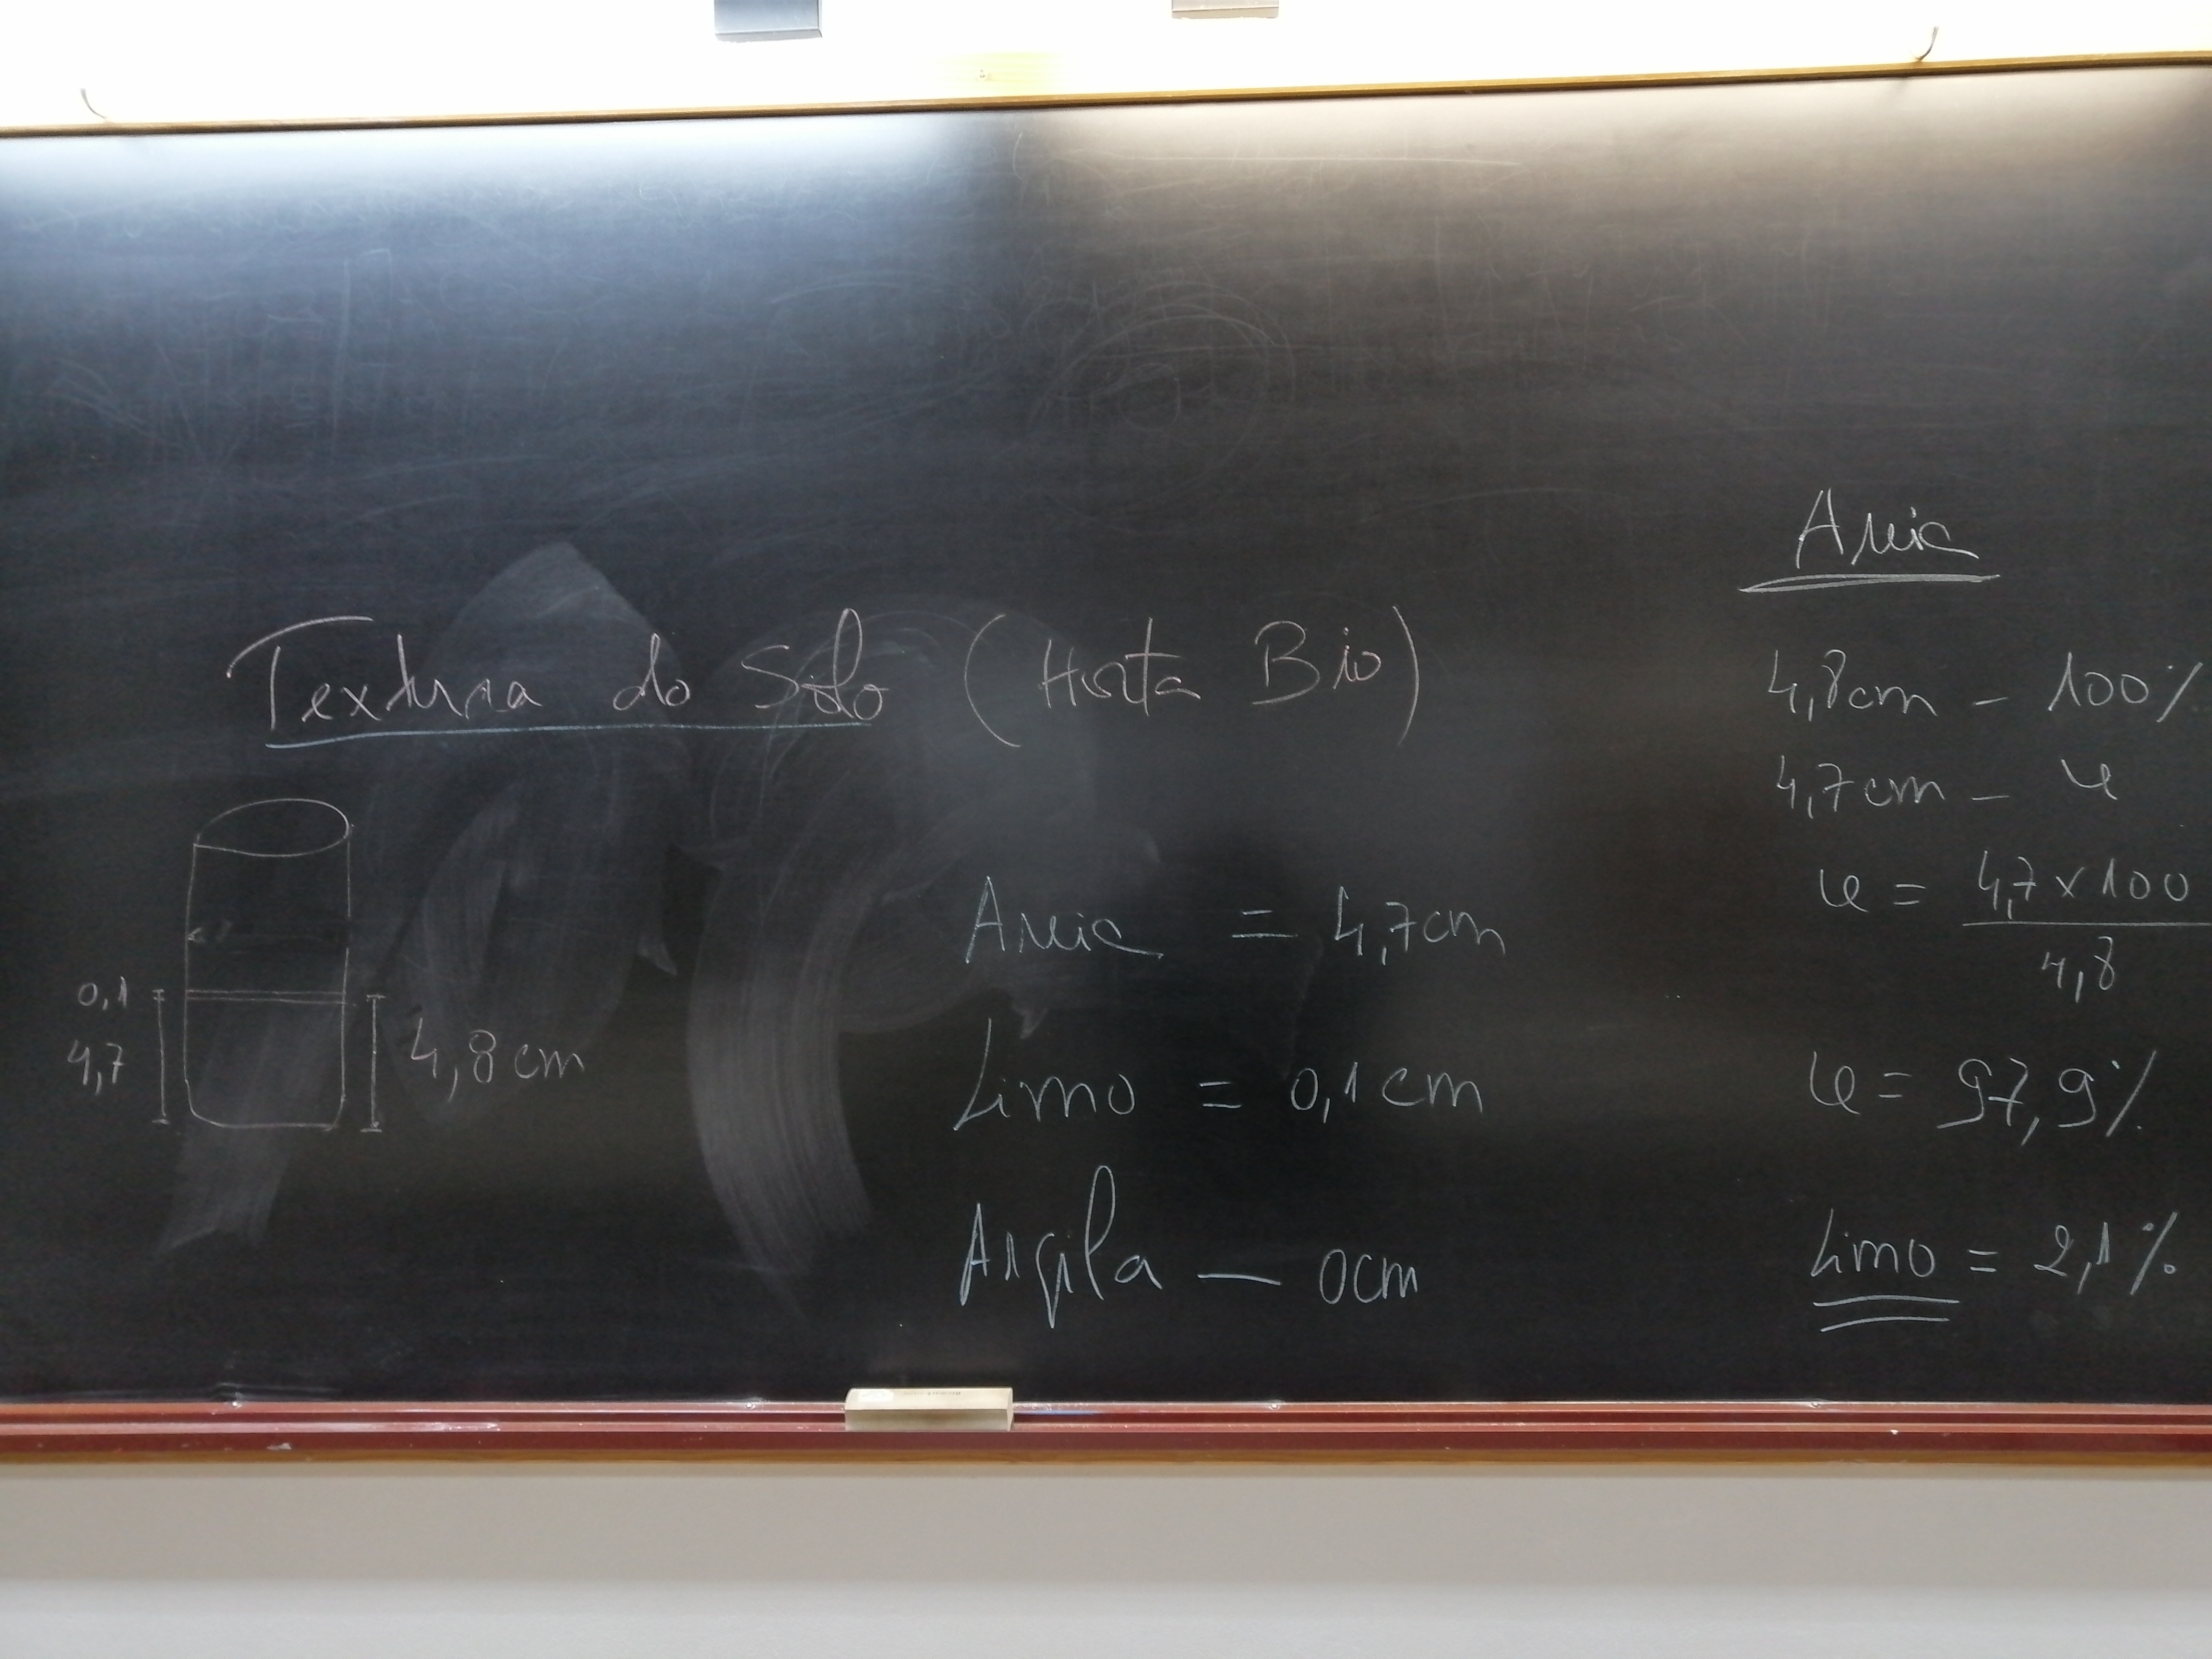 Textura do Solo (Horta Bio)
0,1
4,7
4,8cm
Areia = 4,7cm
Limo = 0,1cm
Argila — 0cm
Areia
4,8cm - 100%
4,7cm - x
x = 4,7 x 100
4,8
x = 97,9%
Limo = 2,1%